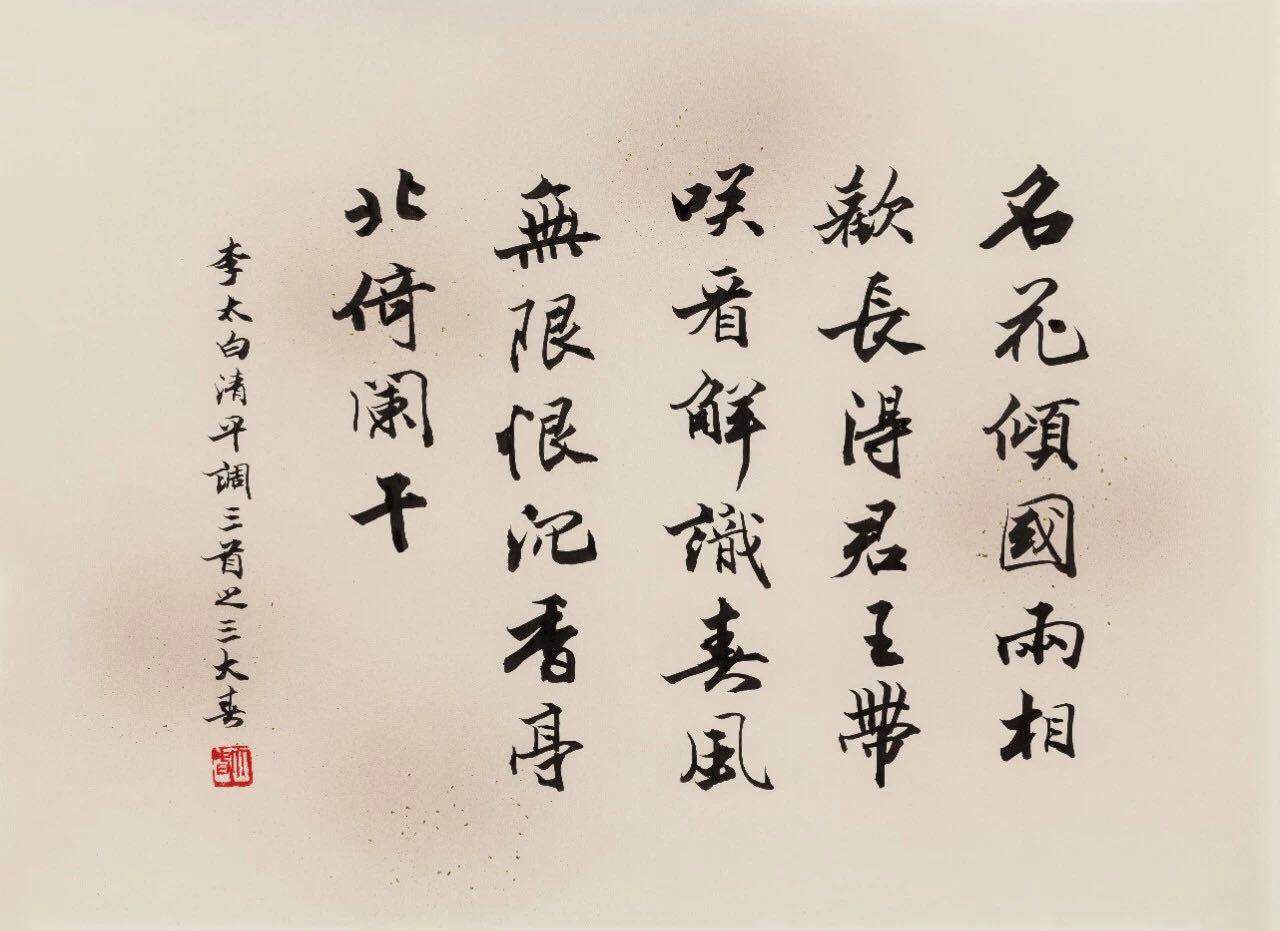 名花傾國兩相
歡長得君王帶
咲看解識春風
無限恨沉香亭
北倚闌干
李太白清平調三首之三大春
大春